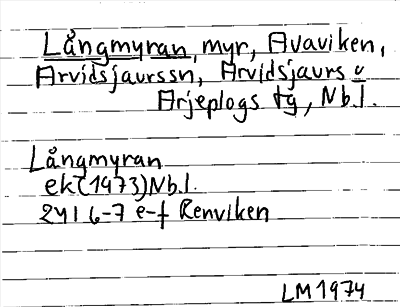 Långmyran, myr, Avaviken,
Arvidsjaurssn, Arvidsjaurs o
Arjeplogs tg, Nb.l.
Långmyran
ek(1973)Nb.l.
24I 6-7 e-f Renviken
LM1974